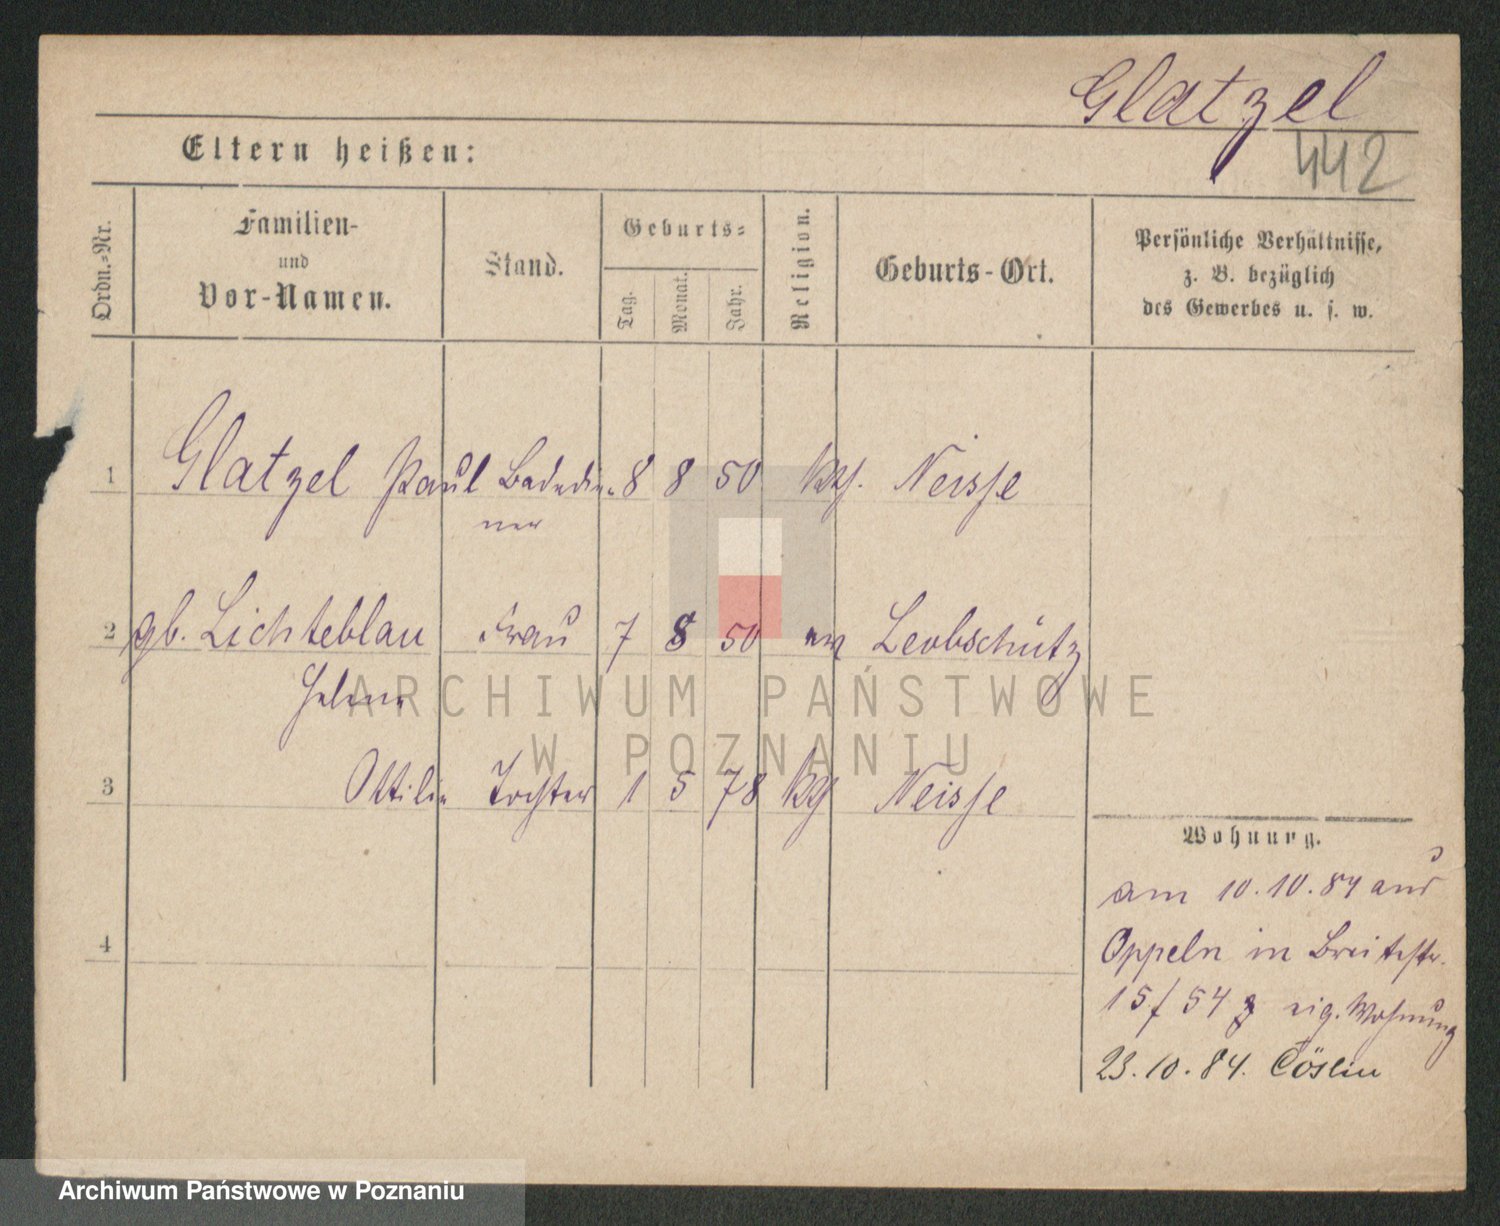 Glatzel
442
Eltern heißen:
Ordn.-Nr.
Familien-
und
Vor-Namen.
Stand.
Geburts-
Tag.
Monat.
Jahr.
Religion.
Geburts-Ort.
Persönliche Verhältnisse,
z. B. bezüglich
des Gewerbes u. s. w.
1 Glatzel Paul Badedie- 8 8 50 kth. Neisse
ner
2 gb. Lichteblau Frau 7 8 50 Leobschütz
Helene
3 Ottilie Tochter 1 5 78 kth Neisse
4
Wohnung.
am 10.10.84 aus
Oppeln in Breitestr.
15/54 eig. Wohnung
23.10.84. Cöslin
ARCHIWUM PAŃSTWOWE
W POZNANIU
Archiwum Państwowe w Poznaniu